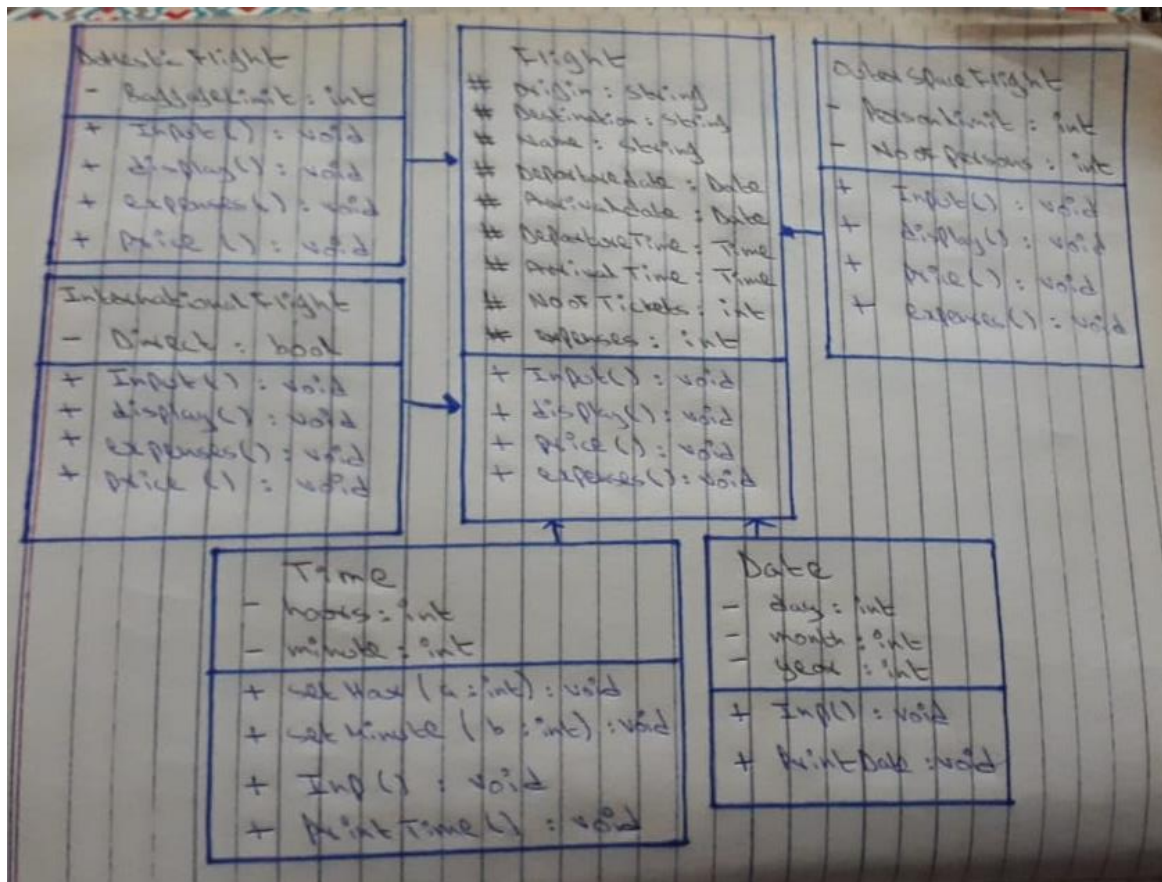 Domestic Flight
- BaggageLimit : int
+ Input() : void
+ display() : void
+ expenses() : void
+ price () : void
International Flight
- Direct : bool
+ Input() : void
+ display() : void
+ expenses() : void
+ price () : void
Flight
# origin : string
# Destination : string
# Name : string
# Departuredate : Date
# Arrivaldate : Date
# DepartureTime : Time
# Arrival Time : Time
# NoofTickets : int
# expenses : int
+ Input() : void
+ display() : void
+ price() : void
+ expenses() : void
OuterspaceFlight
- PersonLimit : int
- Noofpersons : int
+ Input() : void
+ display() : void
+ price() : void
+ expenses() : void
Time
- hours : int
- minute : int
+ set (a : int) : void
+ setMinute (b : int) : void
+ Inp () : void
+ printTime () : void
Date
- day : int
- month : int
- year : int
+ Inp() : void
+ printDate : void